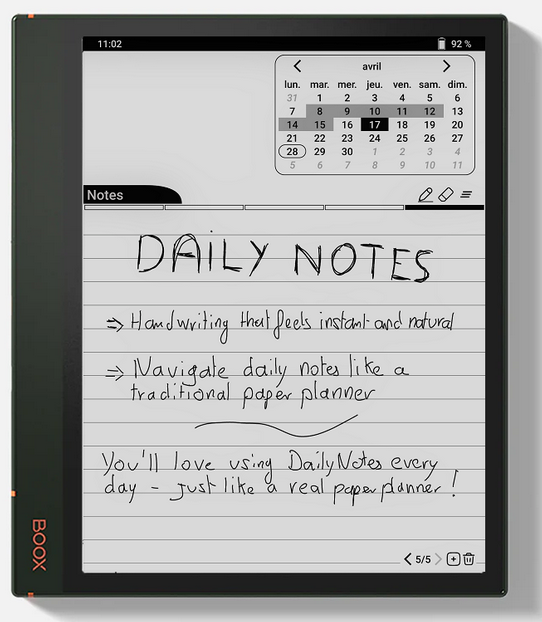 11:02 92 %
avril
lun. mar. mer. jeu. ven. sam. dim.
31 1 2 3 4 5 6
7 8 9 10 11 12 13
14 15 16 17 18 19 20
21 22 23 24 25 26 27
28 29 30 1 2 3 4
5 6 7 8 9 10 11
Notes
DAILY NOTES
⇒ Handwriting that feels instant and natural
⇒ Navigate daily notes like a
traditional paper planner
You'll love using DailyNotes every
day - just like a real paper planner !
5/5
BOOX